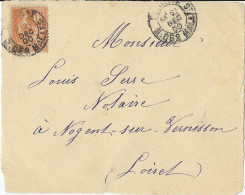 Monsieur
Louis Serre
Notaire
à Nogent-sur-Vernisson
Loiret